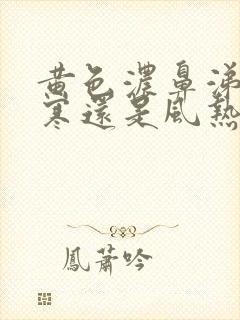 黃色濃鼻涕
寒還是風熱
鳳蕭吟